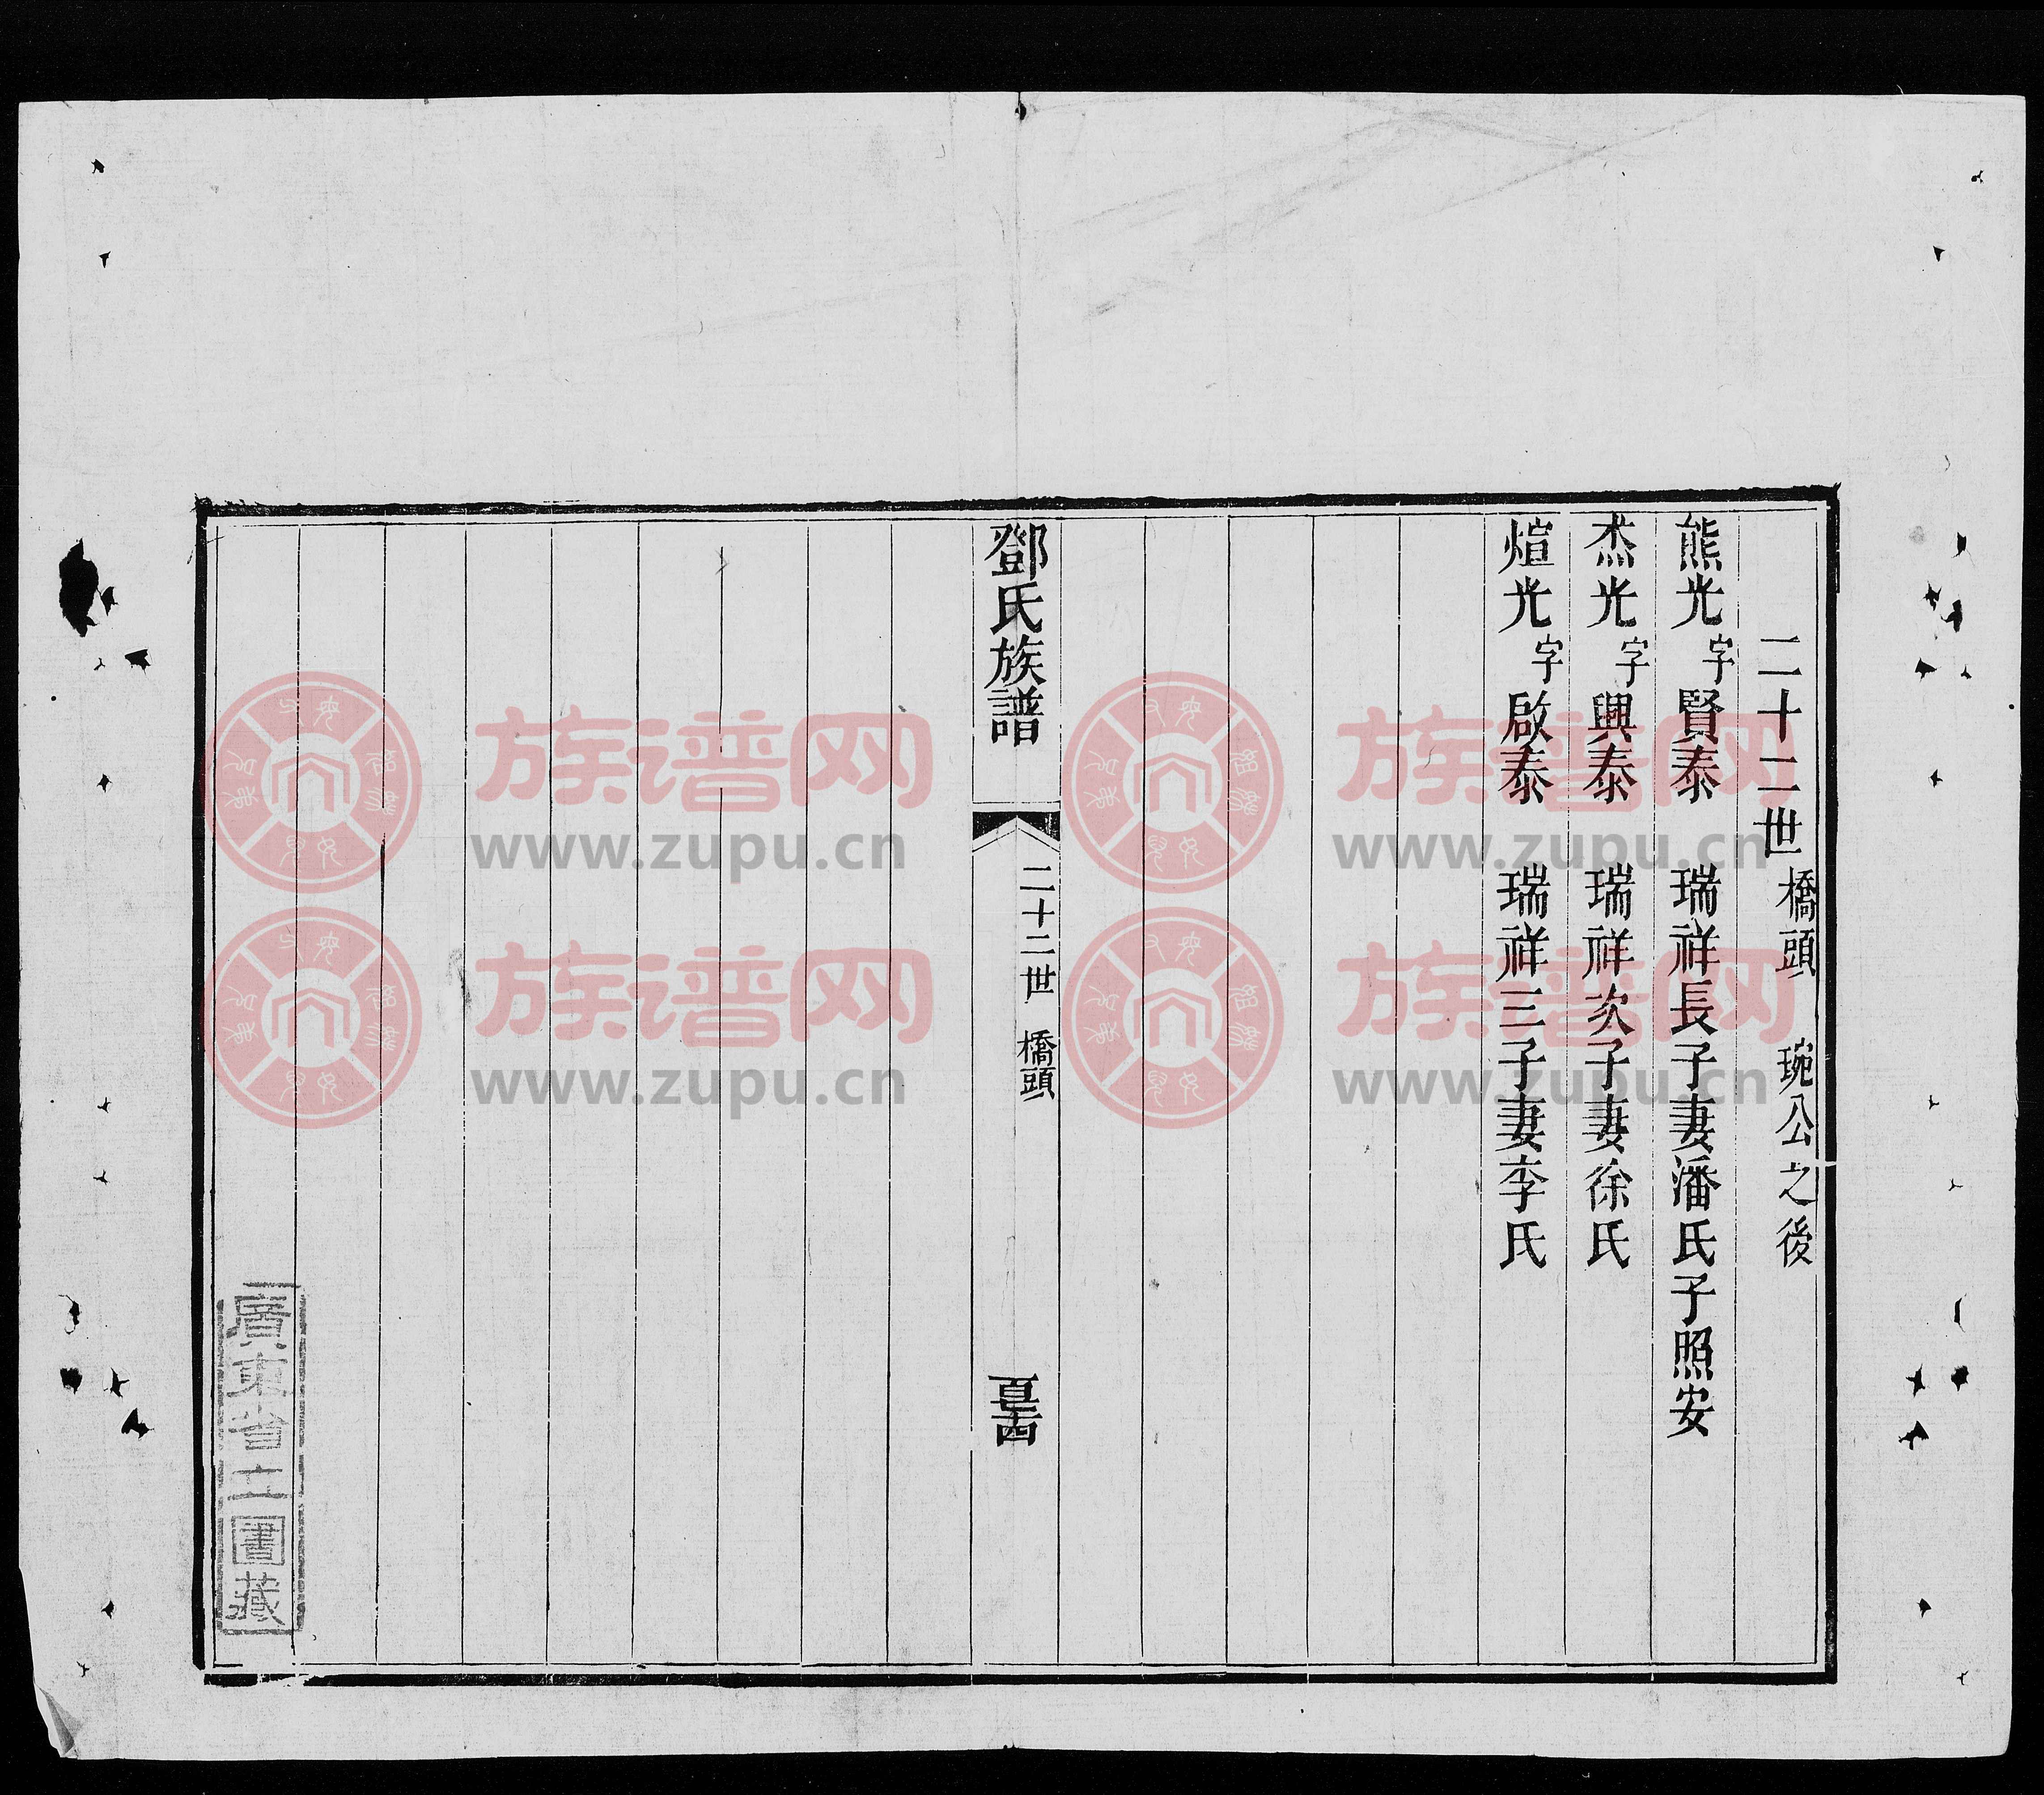 二十二世 橋頭 琬公之後
熊光 字賢泰 瑞祥長子妻潘氏子照安
杰光 字興泰 瑞祥次子妻徐氏
煊光 字啟泰 瑞祥三子妻李氏
鄧氏族譜 二十二世 橋頭
廣東省立圖書藏
族谱网
www.zupu.cn
族谱网
www.zupu.cn
族谱网
www.zupu.cn
族谱网
www.zupu.cn